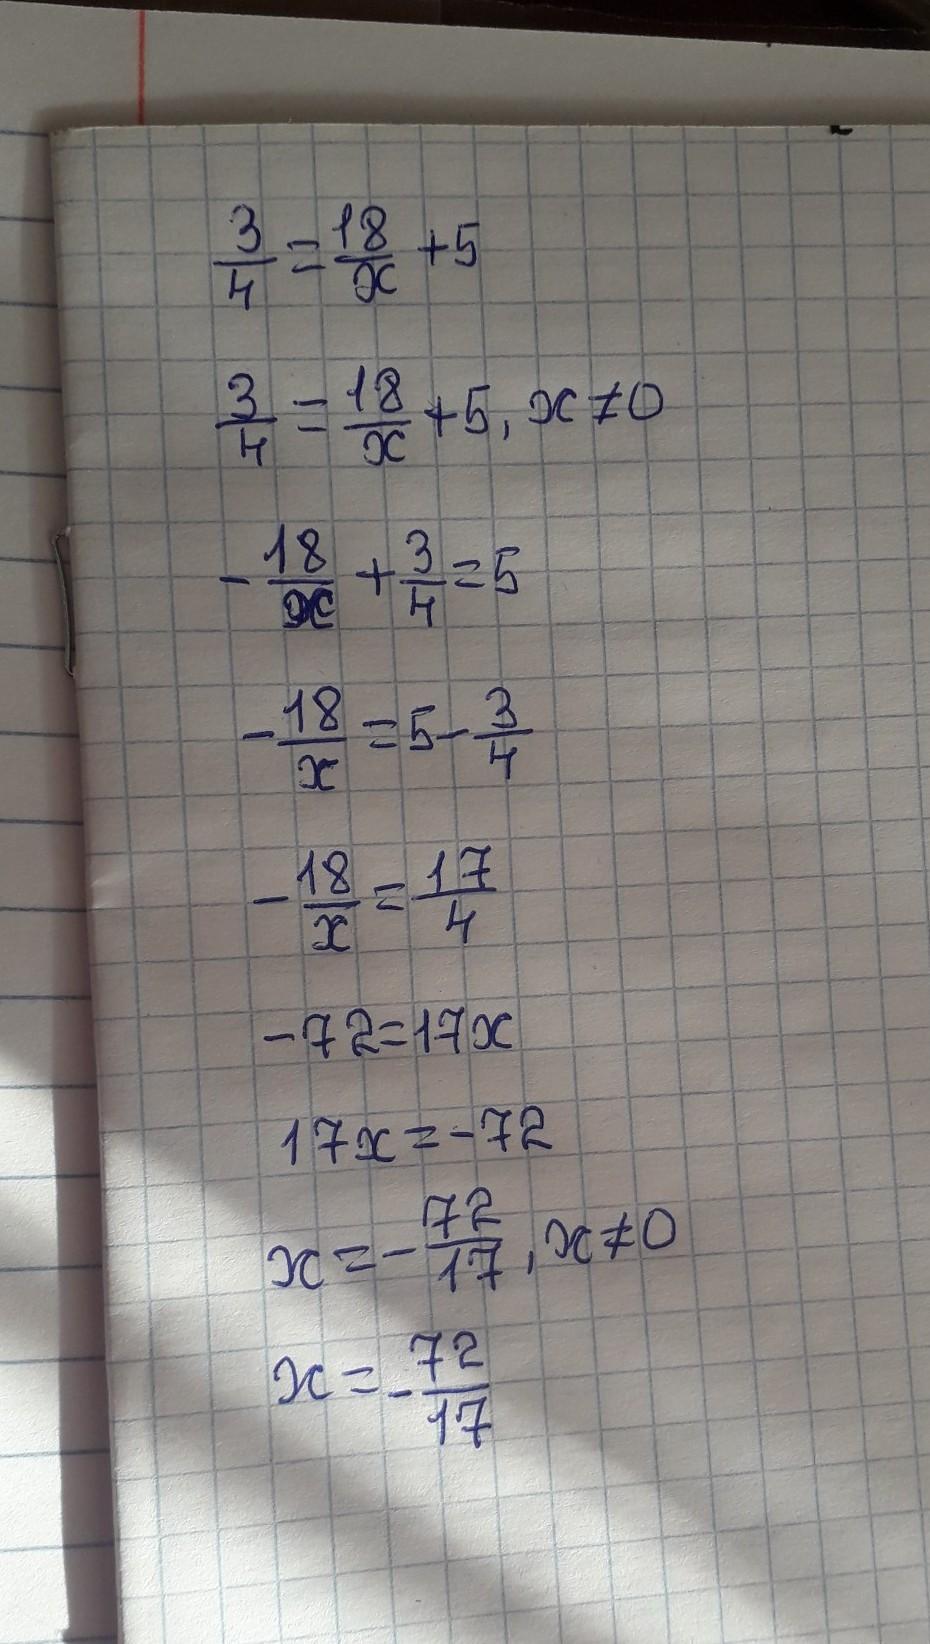 3/4 = 18/x + 5
3/4 = 18/x + 5, x ≠ 0
- 18/x + 3/4 = 5
- 18/x = 5 - 3/4
- 18/x = 17/4
-72 = 17x
17x = -72
x = - 72/17, x ≠ 0
x = - 72/17